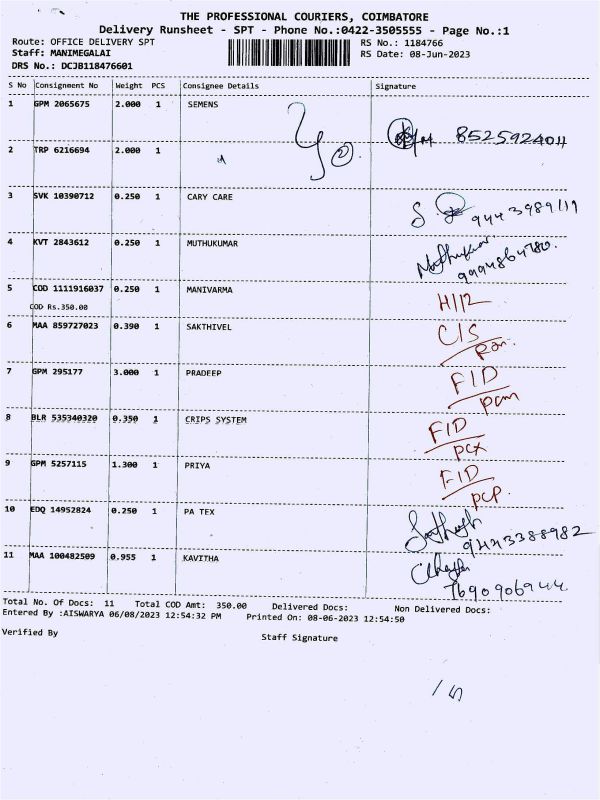 THE PROFESSIONAL COURIERS, COIMBATORE
Delivery Runsheet - SPT - Phone No.:0422-3505555 - Page No.:1
Route: OFFICE DELIVERY SPT RS No.: 1184766
Staff: MANIMEGALAI RS Date: 08-Jun-2023
DRS No.: DCJB118476601
S No Consignment No Weight PCS Consignee Details Signature
1 GPM 2065675 2.000 1 SEMENS 8525924011
2 TRP 6216694 2.000 1
3 SVK 10390712 0.250 1 CARY CARE 9443989119
4 KVT 2843612 0.250 1 MUTHUKUMAR Muthukumar
5 COD 1111916037 0.250 1 MANIVARMA
COD Rs.350.00
6 MAA 859727023 0.390 1 SAKTHIVEL C/S
7 GPM 295177 3.000 1 PRADEEP F/D
pcm
8 BLR 535340320 0.350 1 CRIPS SYSTEM F/D
pcx
9 GPM 5257115 1.300 1 PRIYA F/D
pcp.
10 EDQ 14952824 0.250 1 PA TEX 9443388982
11 MAA 100482509 0.955 1 KAVITHA 7690906944
Total No. Of Docs: 11 Total COD Amt: 350.00 Delivered Docs: Non Delivered Docs:
Entered By :AISWARYA 06/08/2023 12:54:32 PM Printed On: 08-06-2023 12:54:50
Verified By Staff Signature